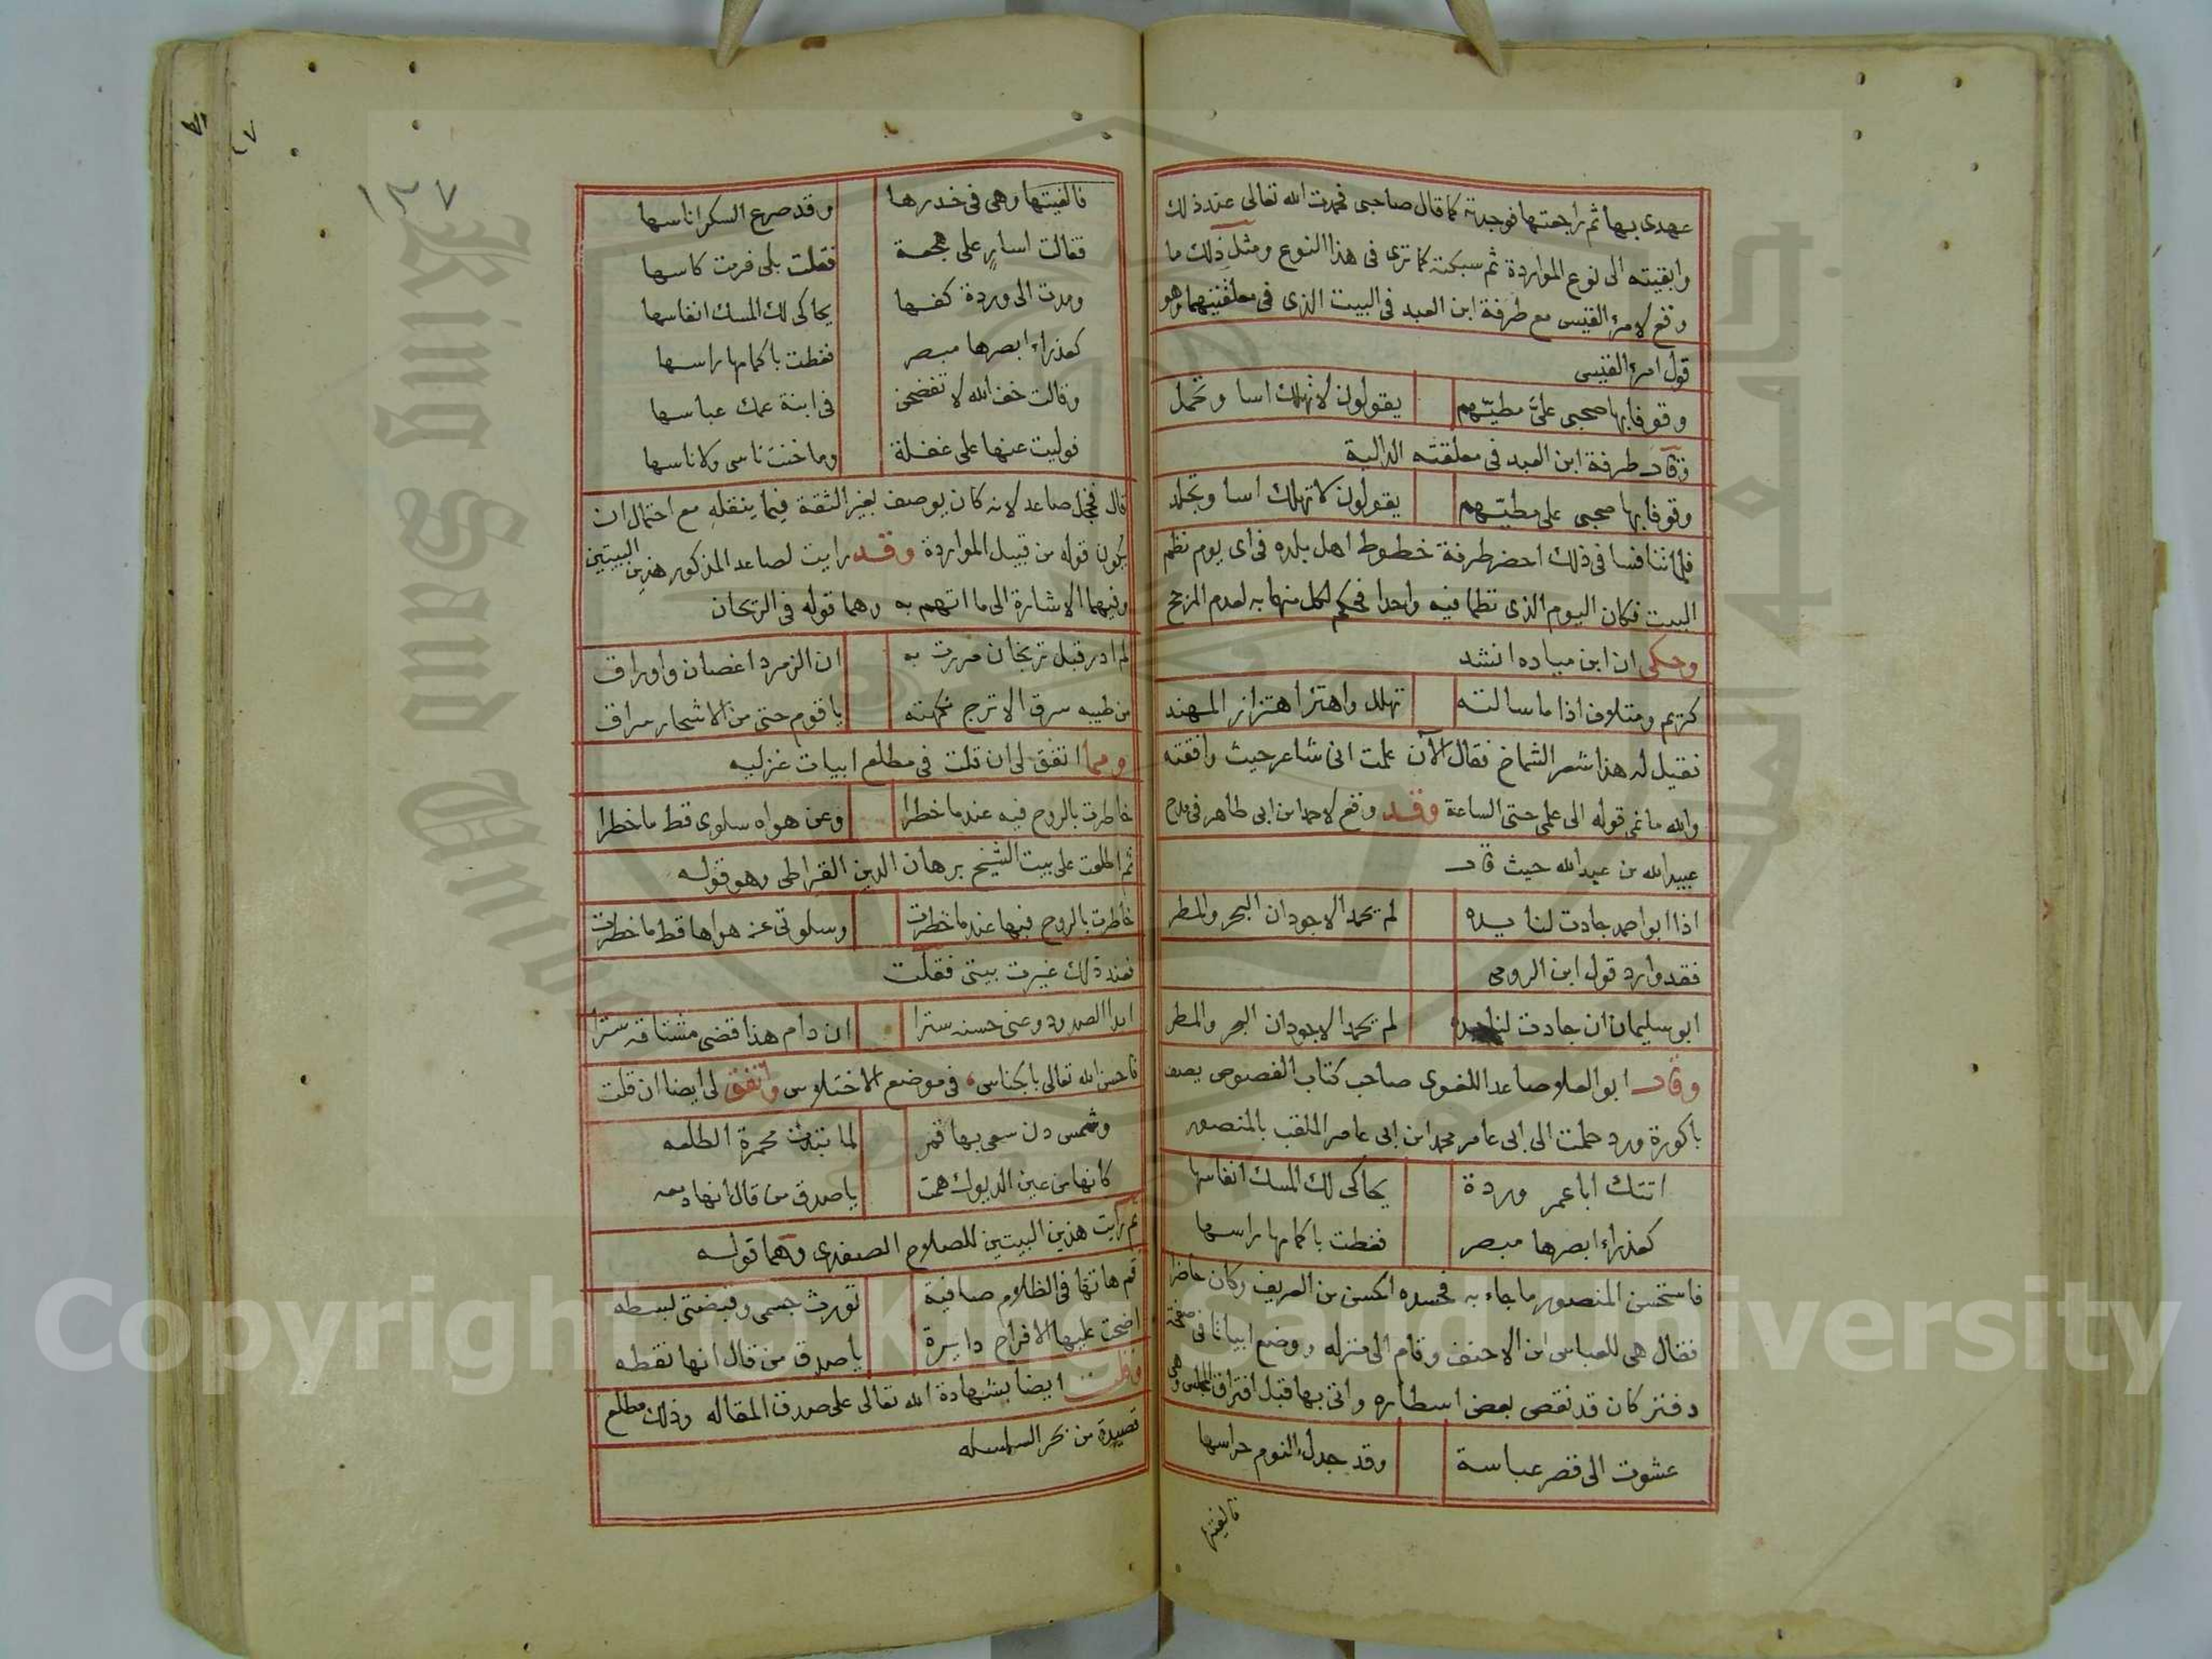 عهدى بها ثم راجعتها فوجدته كما قال صاحبى فحمدت الله تعالى عند ذلك
وابقيته الى نوع المواردة ثم سبكته كما ترى فى هذا النوع ومثل ذلك ما
وقع لامرئ القيس مع طرفة ابن العبد فى البيت الذى فى معلقتيهما وهو
قول امرئ القيس
وقوفا بها صحبى علىّ مطيّهم يقولون لا تهلك اسا وتحمل
وقال طرفة ابن العبد فى معلقته الدالية
وقوفا بها صحبى على مطيّهم يقولون لا تهلك اسا وتجلد
فلما تنافسا فى ذلك احضر طرفة خطوط اهل بلده فى اى يوم نظم
البيت فكان اليوم الذى نظما فيه واحدا فحكم لكل منهما به لعدم المرجح
وحكى ان ابن مياده انشد
كريم ومتلاف اذا ما سالته تهلل واهتز اهتزاز المهند
فقيل له هذا شعر الشماخ فقال الآن علمت انى شاعر حيث وافقته
والله ما نمى قوله الى علمى حتى الساعة وقد وقع لاحمد ابن ابى طاهر فى مدح
عبيد الله بن عبد الله حيث قال
اذا ابو احمد جادت لنا يده لم يحمد الاجودان البحر والمطر
فقد وارد قول ابن الرومى
ابو سليمان ان جادت لنا يده لم يحمد الاجودان البحر والمطر
وقال ابو العلا صاعد اللغوى صاحب كتاب الفصوص يصف
باكورة ورد حملت الى ابى عامر محمد ابن ابى عامر الملقب بالمنصور
اتتك ابا عمر وردة يحاكى لك المسك انفاسها
كعذراء ابصرها مبصر فغطت باكمامها راسها
فاستحسن المنصور ما جاء به فحسده الحسن بن العريف وكان حاضرا
فقال هى للعباس ابن الاحنف وقام الى منزله ووضع ابياتا فى صفحة
دفتر كان قد نقص بعض اسطاره واتى بها قبل افتراق المجلس وهى
عشوت الى قصر عباسة وقد جدل النوم حراسها
فالفيتها
١٣٧
فالفيتها وهى فى خدرها وقد صرع السكر اناسها
فقالت اسار على هجعة فقلت بلى فرمت كاسها
ومدت الى وردة كفها يحاكى لك المسك انفاسها
كعذراء ابصرها مبصر فغطت باكمامها راسها
وقالت خف الله لا تفضحن فى ابنة عمك عباسها
فوليت عنها على غفلة وما خنت ناسى ولا ناسها
قال فخجل صاعد لانه كان يوصف بغير الثقة فيما ينقله مع احتمال ان
يكون قوله من قبيل المواردة وقد رايت لصاعد المذكور هذين البيتين
وفيهما الاشارة الى ما اتهم به وهما قوله فى الريحان
لم ادر قبل تريجان مررت به ان الزمرد اغصان واوراق
من طيبه سرق الاترج نكهته يا قوم حتى من الاشجار سراق
ومما اتفق لى ان قلت فى مطلع ابيات غزليه
خاطرت بالروح فيه عندما خطرا وعن هواه سلوى قط ما خطرا
ثم اطلعت على بيت الشيخ برهان الدين القراطى وهو قوله
خاطرت بالروح فيها عندما خطرت وسلوتى عن هواها قط ما خطرت
فعند ذلك غيرت بيتى فقلت
ابدا الصدود وعنى حسنه سترا ان دام هذا قضى مشتاقه سترا
فاحسن الله تعالى بالجناس، فى موضع الاختلاس واتفق لى ايضا ان قلت
وشمس دن سعى بها قمر لما تبدت محمرة الطلعه
كانها من عين الديوك همت يا صدق من قال انها دمعه
ثم رايت هذين البيتين للصلاح الصفدى وهما قوله
قم هاتها فى الظلام صافية تورث جسمى وقبضتى بسطه
اضحت عليها الافراح دايرة يا صدق من قال انها نقطه
وقلت ايضا بشهادة الله تعالى على صدق المقاله وذلك مطلع
قصيدة من بحر السلسله
Copyright © King Saud University